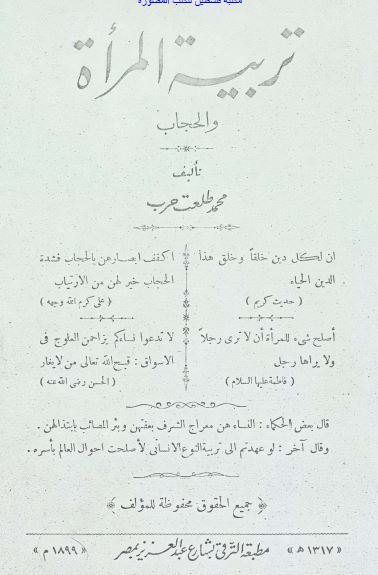 مكتبة فلسطين للكتب المصورة
تربية المرأة
والحجاب
تأليف
محمد طلعت حرب
ان لكل دين خلقاً وخلق هذا
الدين الحياء
( حديث كريم )
أصلح شىء للمرأة أن لا ترى رجلاً
ولا يراها رجل
( فاطمة عليها السلام )
اكفف ابصارهن بالحجاب فشدة
الحجاب خير لهن من الارتياب
( على كرم الله وجهه )
لا تدعوا نساءكم يزاحمن العلوج فى
الاسواق : قبح الله تعالى من لا يغار
( الحسن رضى الله عنه )
قال بعض الحكماء : النساء هن معراج الشرف بعفتهن وبئر المصائب بابتذالهن .
وقال آخر : لو عهدتم الى تربية النوع الانسانى لأصلحت احوال العالم بأسره .
﴿ جميع الحقوق محفوظة للمؤلف ﴾
« ١٣١٧ ه » مطبعة الترقى بشارع عبد العزيز بمصر « ١٨٩٩ م »